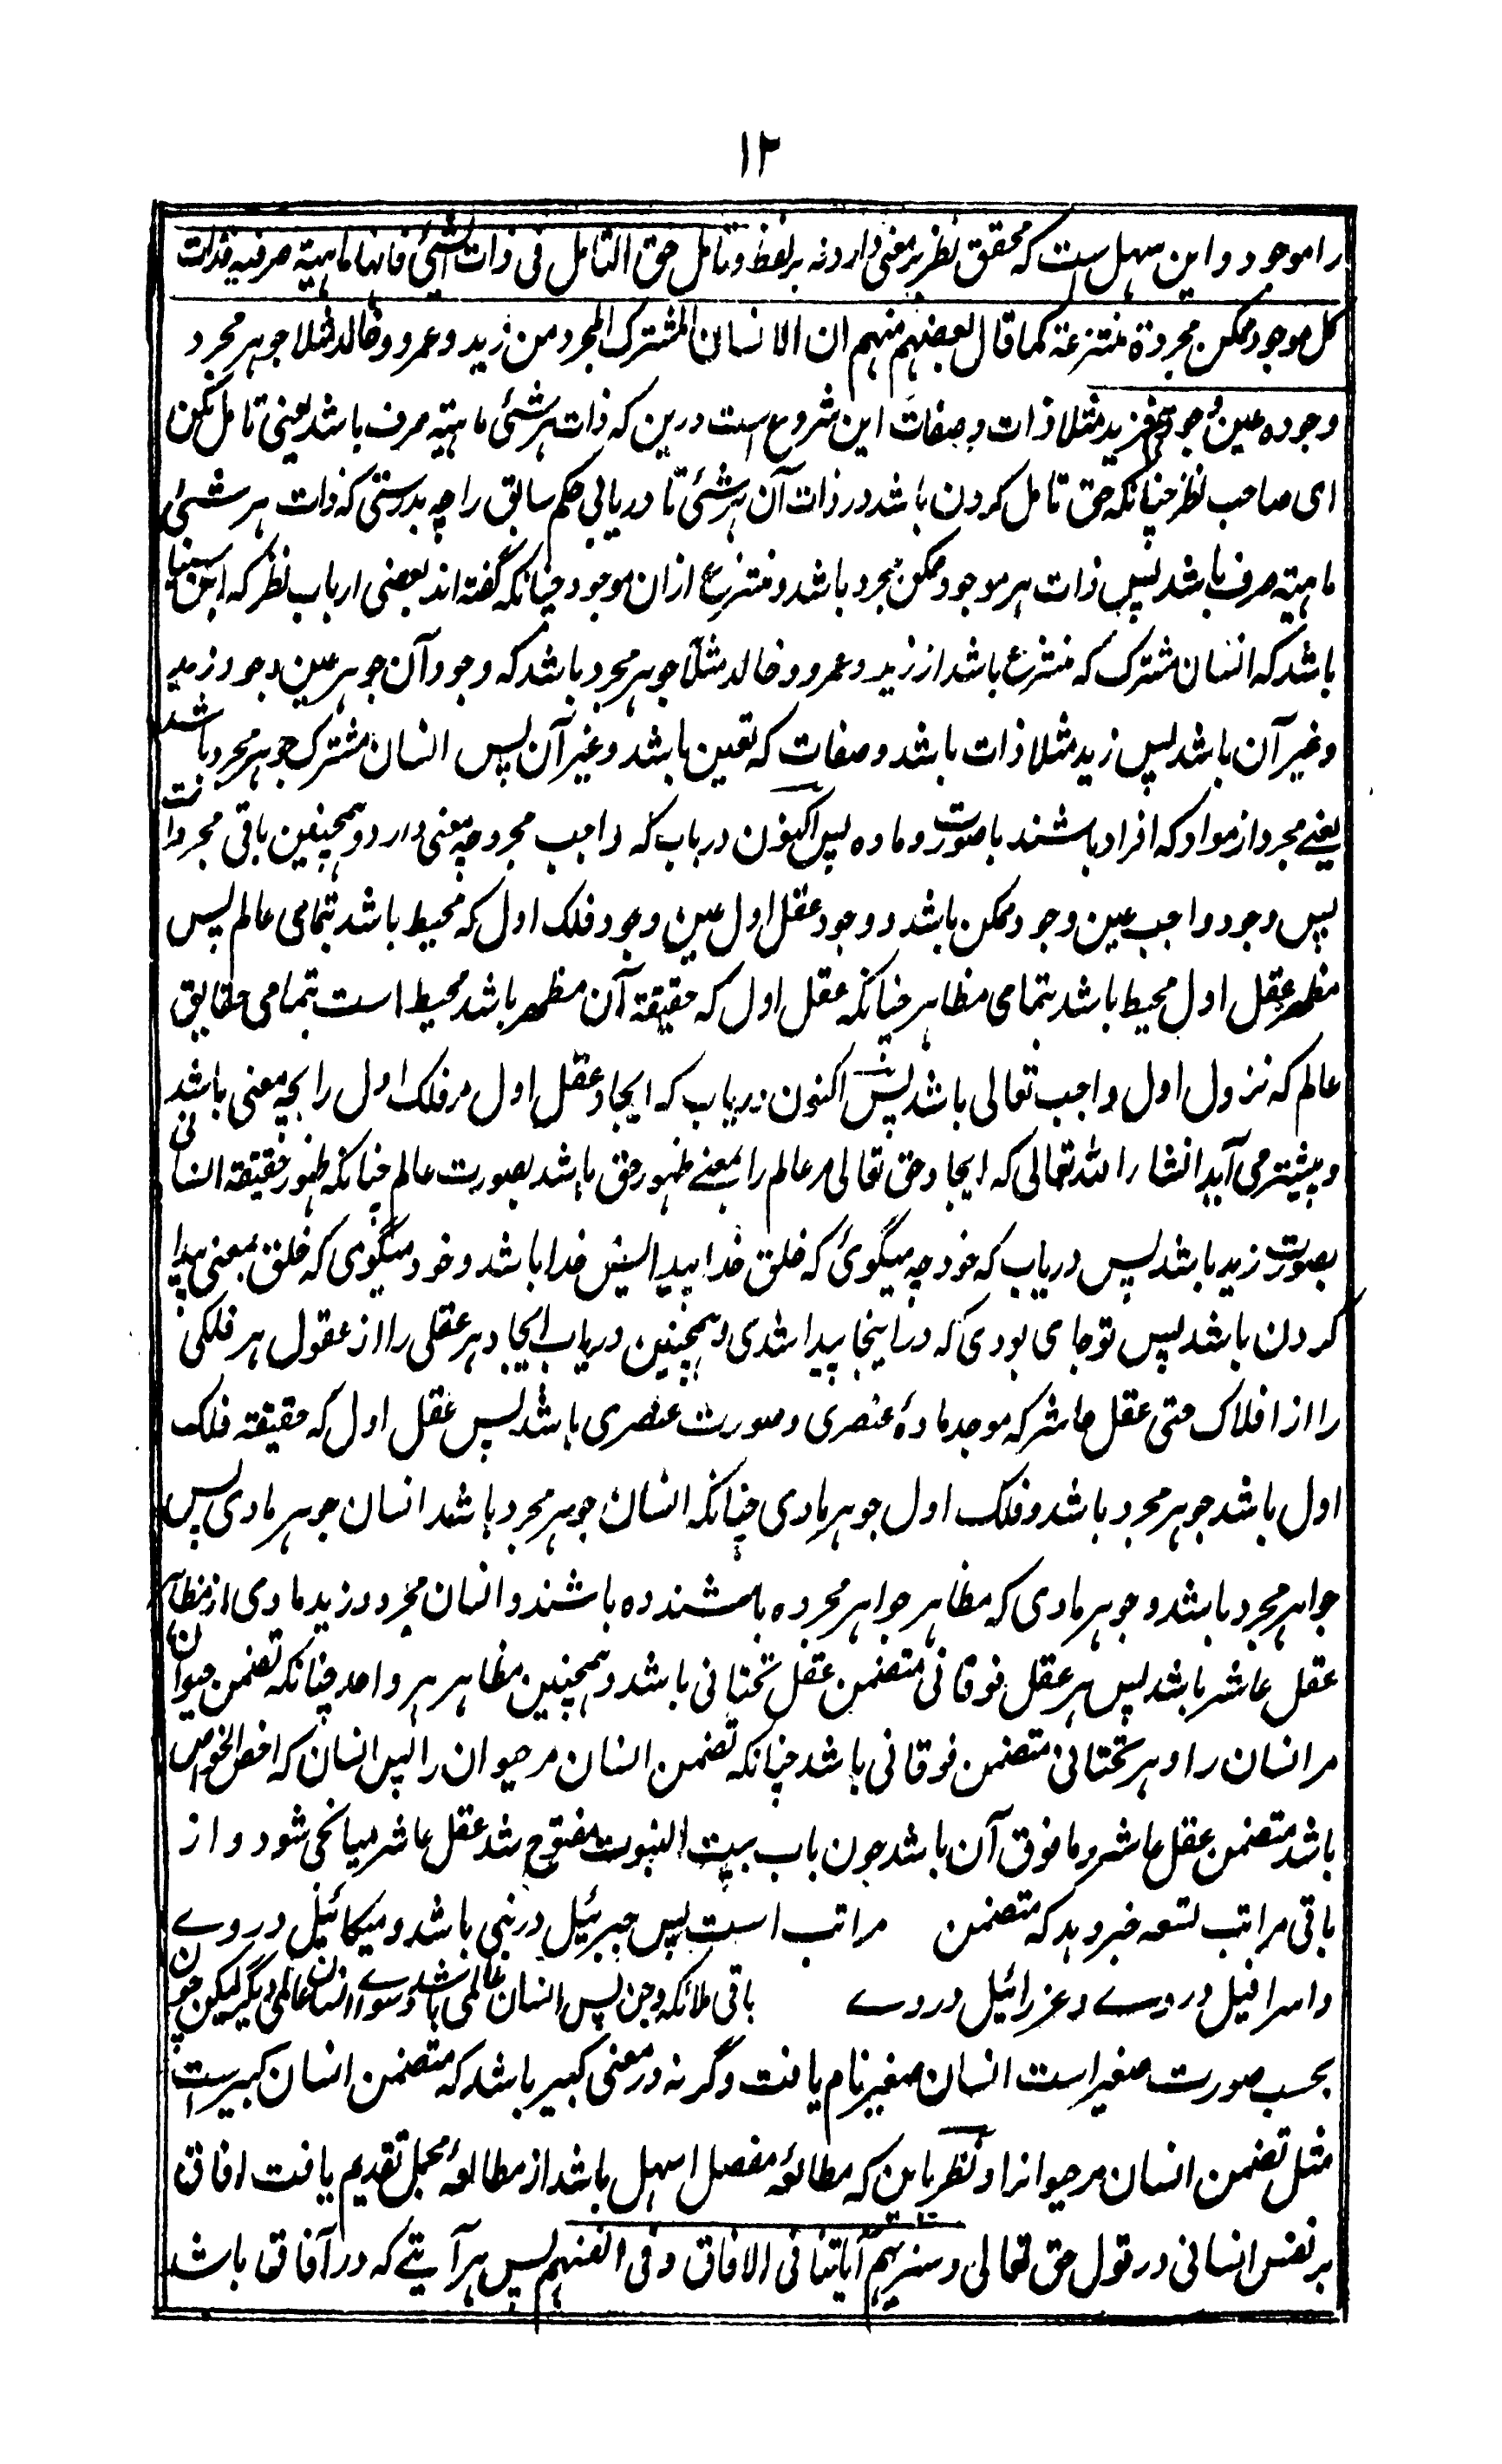 ۱۲
را موجود و این سهل ست که محقق نظر بر معنی دارد نه بر لفظ و تامل حق التامل فی ذات الشیٔ فانها ماهیة صرفیة فذات
کل موجود ممکن مجردة منتزعة کما قال بعضهم منهم ان الانسان المشترک المجرد من زید و عمرو و خالد مثلا جوهر مجرد
وجوده عین وجودهم فزید مثلا ذات و صفات این شروع است درین که ذات هر شئی ماهیة صرف باشد یعنی تامل کن
ای صاحب نظر چنانکه حق تامل کردن باشد در ذات آن هر شئی تا دریابی حکم سابق را چه بدرستی که ذات هر شئی
ماهیة صرف باشد پس ذات هر موجود ممکن مجرد باشد و منتزع ازان موجود چنانکه گفته اند بعضی ارباب نظر که ابن سینا
باشد که انسان مشترک که منتزع باشد از زید و عمرو و خالد مثلا جوهر مجرد باشد که وجود آن جوهر عین وجود زید
و غیر آن باشد پس زید مثلا ذات باشد و صفات که تعین باشد و غیر آن پس انسان مشترک جوهر مجرد باشد
یعنے مجرد از مواد که افراد باشند با صورت و ماده پس اکنون دریاب که واجب مجرد چه معنی دارد و همچنین باقی مجردات
پس وجود واجب عین وجود ممکن باشد و وجود عقل اول عین وجود فلک اول که محیط باشد بتمامی عالم پس
مظهر عقل اول محیط باشد بتمامی مظاهر چنانکه عقل اول که حقیقة آن مظهر باشد محیط است بتمامی حقایق
عالم که نزول اول واجب تعالی باشد پس اکنون دریاب که ایجاد عقل اول مر فلک اول را بچه معنی باشد
و پیشتر می آید انشاء الله تعالی که ایجاد حق تعالی مر عالم را بمعنے ظهور حق باشد بصورت عالم چنانکه ظهور حقیقة انسانی
بصورت زید باشد پس دریاب که خود چه میگویٔ که خلق خدا پیدایش خدا باشد و خود میگوی که خلق بمعنی پیدا
کردن باشد پس تو جای بودی که در اینجا پیدا شدی و همچنین دریاب ایجاد هر عقلی را از عقول هر فلکی
را از افلاک حتی عقل عاشر که موجد مادهٔ عنصری و صورت عنصری باشد پس عقل اول که حقیقة فلک
اول باشد جوهر مجرد باشد و فلک اول جوهر مادی چنانکه انسان جوهر مجرد باشد انسان جوهر مادی پس
جواهر مجرد باشد و جوهر مادی که مظاهر جواهر مجرده باشند ده باشند و انسان مجرد و زید مادی از مظاهر
عقل عاشر باشد پس هر عقل فوقانی متضمن عقل تحتانی باشد و همچنین مظاهر هر واحد چنانکه تضمن حیوان
مر انسان را و هر تحتانی متضمن فوقانی باشد چنانکه تضمن انسان مر حیوان را پس انسان که اخص الخواص
باشد متضمن عقل عاشر و ما فوق آن باشد چون باب بیت النبوت مفتوح شد عقل عاشر میانجی شود و از
باقی مراتب تسعه خبر دهد که متضمن مراتب است پس جبرئیل در نبی باشد و میکائیل در وے
و اسرافیل در وے و عزرائیل در وے باقی ملائکه و جن پس انسان عالمی باشد و سوے انسان عالمی دیگر لیکن چون
بحسب صورت صغیر است انسان صغیر نام یافت و گرنه در معنی کبیر باشد که متضمن انسان کبیر است
مثل تضمن انسان مر حیوانرا و نظر باین که مطالعهٔ مفصل اسهل باشد از مطالعهٔ مجمل تقدیم یافت افاق
بر نفس انسانی در قول حق تعالی و سنریهم آیاتنا فی الافاق و فی انفسهم پس هر آیتے که در آفاق باشد